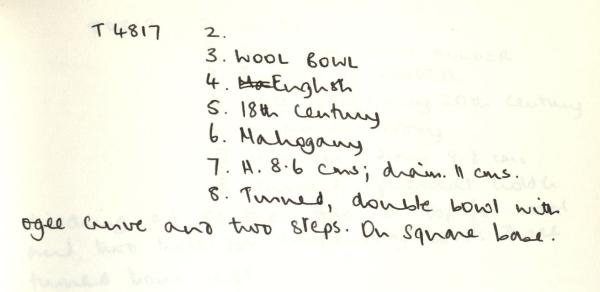 T 4817 2.
3. WOOL BOWL
4. English
5. 18th Century
6. Mahogany
7. H. 8.6 cms; diam. 11 cms.
8. Turned, double bowl with
ogee curve and two steps. On square base.